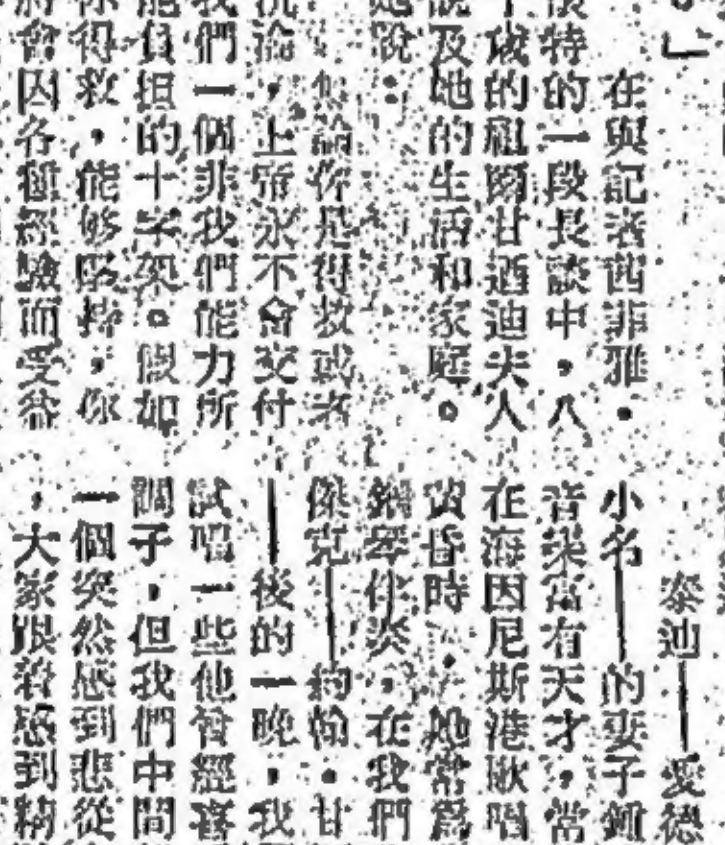 。」
在與記者茜菲雅・
特的一段長談中，八
歲的祖爾甘迺迪夫人
說及她的生活和家庭。
她說：
無論你是得救或者
沉淪，上帝永不會交付
我們一個非我們能力所
能負担的十字架。假如
你得救，能够堅持，你
將會因各種經驗而受益
泰迪——愛德
小名——的妻子鍾
音樂富有天才，常
在海因尼斯港歌唱
黃昏時，她常爲
鋼琴伴奏，在我們
傑克——約翰・甘
——後的一晚，我
試唱一些他曾經喜
調子，但我們中間
一個突然感到悲從
，大家跟着感到精